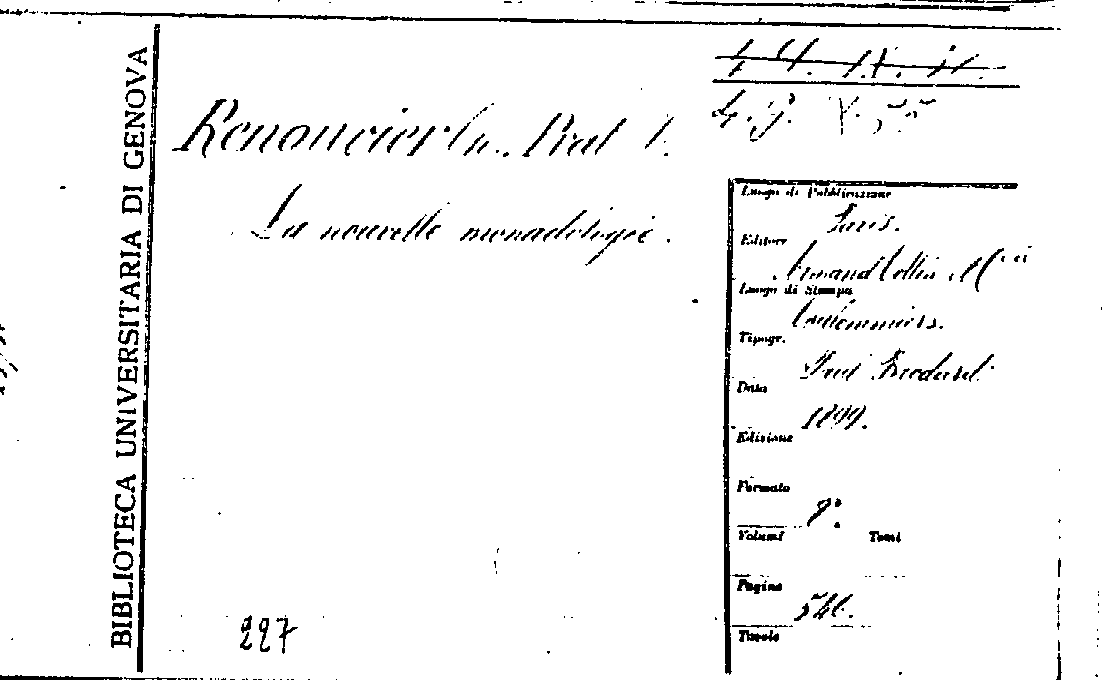 BIBLIOTECA UNIVERSITARIA DI GENOVA
Renouvier Ch. Prat L.
La nouvelle monadologie.
Luogo di Pubblicazione
Paris.
Editore
Armand Colin
Luogo di Stampa
Coulommiers.
Tipogr.
Paul Brodard.
Data
1899.
Edizione
Formato
8°.
Volumi Tomi
Pagine
546.
Tavole
227